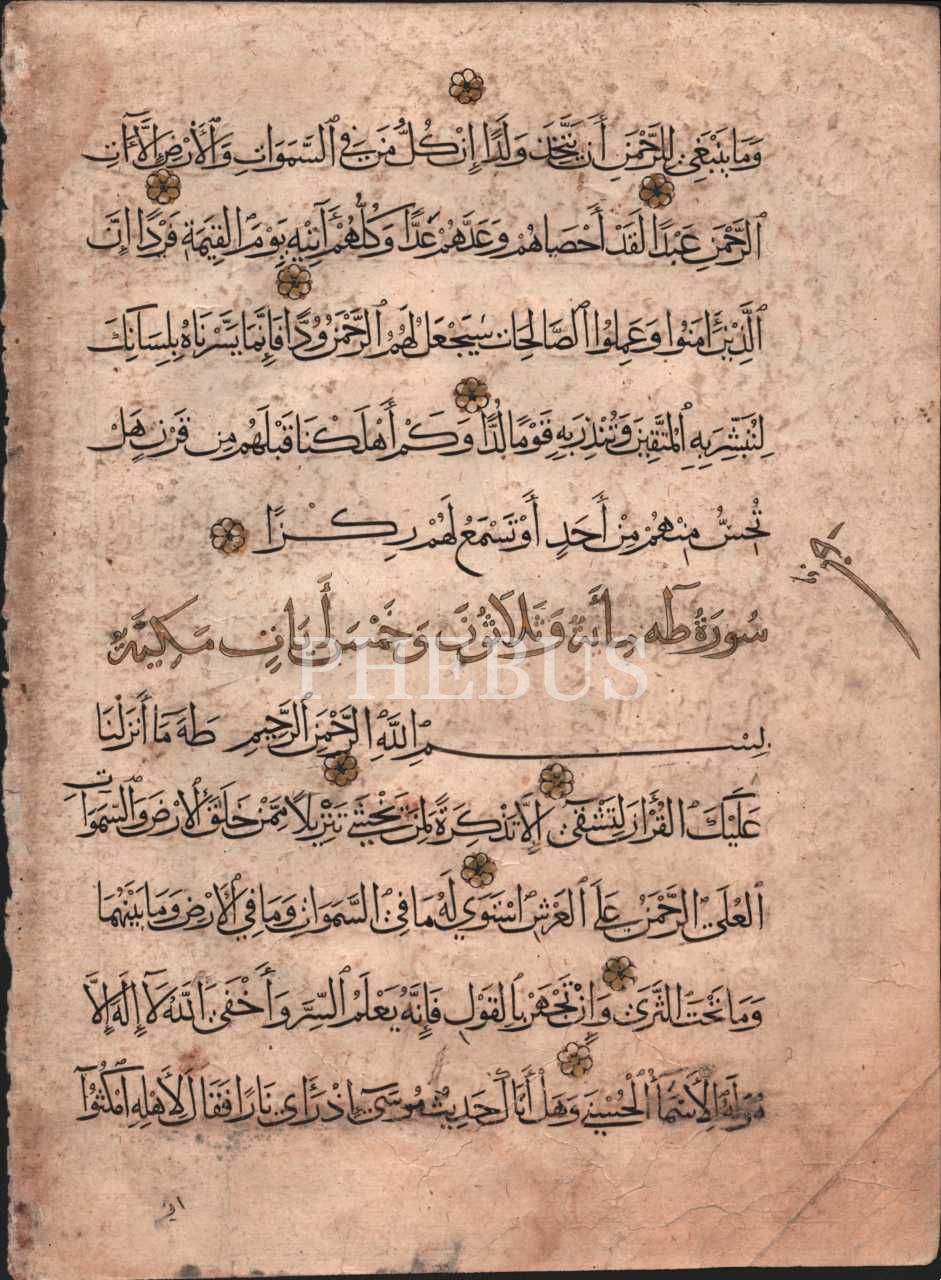 وَمَا يَنْبَغِي لِلرَّحْمٰنِ أَنْ يَتَّخِذَ وَلَدًا إِنْ كُلُّ مَنْ فِي السَّمَوَاتِ وَالْأَرْضِ إِلَّا آتِ
الرَّحْمٰنِ عَبْدًا لَقَدْ أَحْصَاهُمْ وَعَدَّهُمْ عَدًّا وَكُلُّهُمْ آتِيهِ يَوْمَ الْقِيٰمَةِ فَرْدًا إِنَّ
الَّذِينَ ءَامَنُوا وَعَمِلُوا الصَّالِحَاتِ سَيَجْعَلُ لَهُمُ الرَّحْمٰنُ وُدًّا فَإِنَّمَا يَسَّرْنَاهُ بِلِسَانِكَ
لِتُبَشِّرَ بِهِ الْمُتَّقِينَ وَتُنْذِرَ بِهِ قَوْمًا لُدًّا وَكَمْ أَهْلَكْنَا قَبْلَهُمْ مِنْ قَرْنٍ هَلْ
تُحِسُّ مِنْهُمْ مِنْ أَحَدٍ أَوْ تَسْمَعُ لَهُمْ رِكْزًا
سُورَةُ طٰهٰ مِائَة وَثَلَاثُونَ وَخَمْس آيَاتٍ مَكِّيَّة
PHEBUS
بِسْمِ اللَّهِ الرَّحْمٰنِ الرَّحِيمِ طٰهٰ مَا أَنْزَلْنَا
عَلَيْكَ الْقُرْآنَ لِتَشْقَى إِلَّا تَذْكِرَةً لِمَنْ يَخْشَى تَنْزِيلًا مِمَّنْ خَلَقَ الْأَرْضَ وَالسَّمَوَاتِ
الْعُلَى الرَّحْمٰنُ عَلَى الْعَرْشِ اسْتَوَى لَهُ مَا فِي السَّمَوَاتِ وَمَا فِي الْأَرْضِ وَمَا بَيْنَهُمَا
وَمَا تَحْتَ الثَّرَى وَإِنْ تَجْهَرْ بِالْقَوْلِ فَإِنَّهُ يَعْلَمُ السِّرَّ وَأَخْفَى اللَّهُ لَا إِلٰهَ إِلَّا
هُوَ لَهُ الْأَسْمَاءُ الْحُسْنَى وَهَلْ أَتَاكَ حَدِيثُ مُوسَى إِذْ رَأَى نَارًا فَقَالَ لِأَهْلِهِ امْكُثُوا